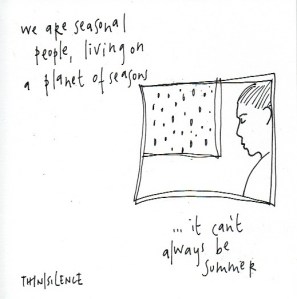 we are seasonal
people, living on
a planet of seasons
... it can't
always be
summer
THIN/SILENCE